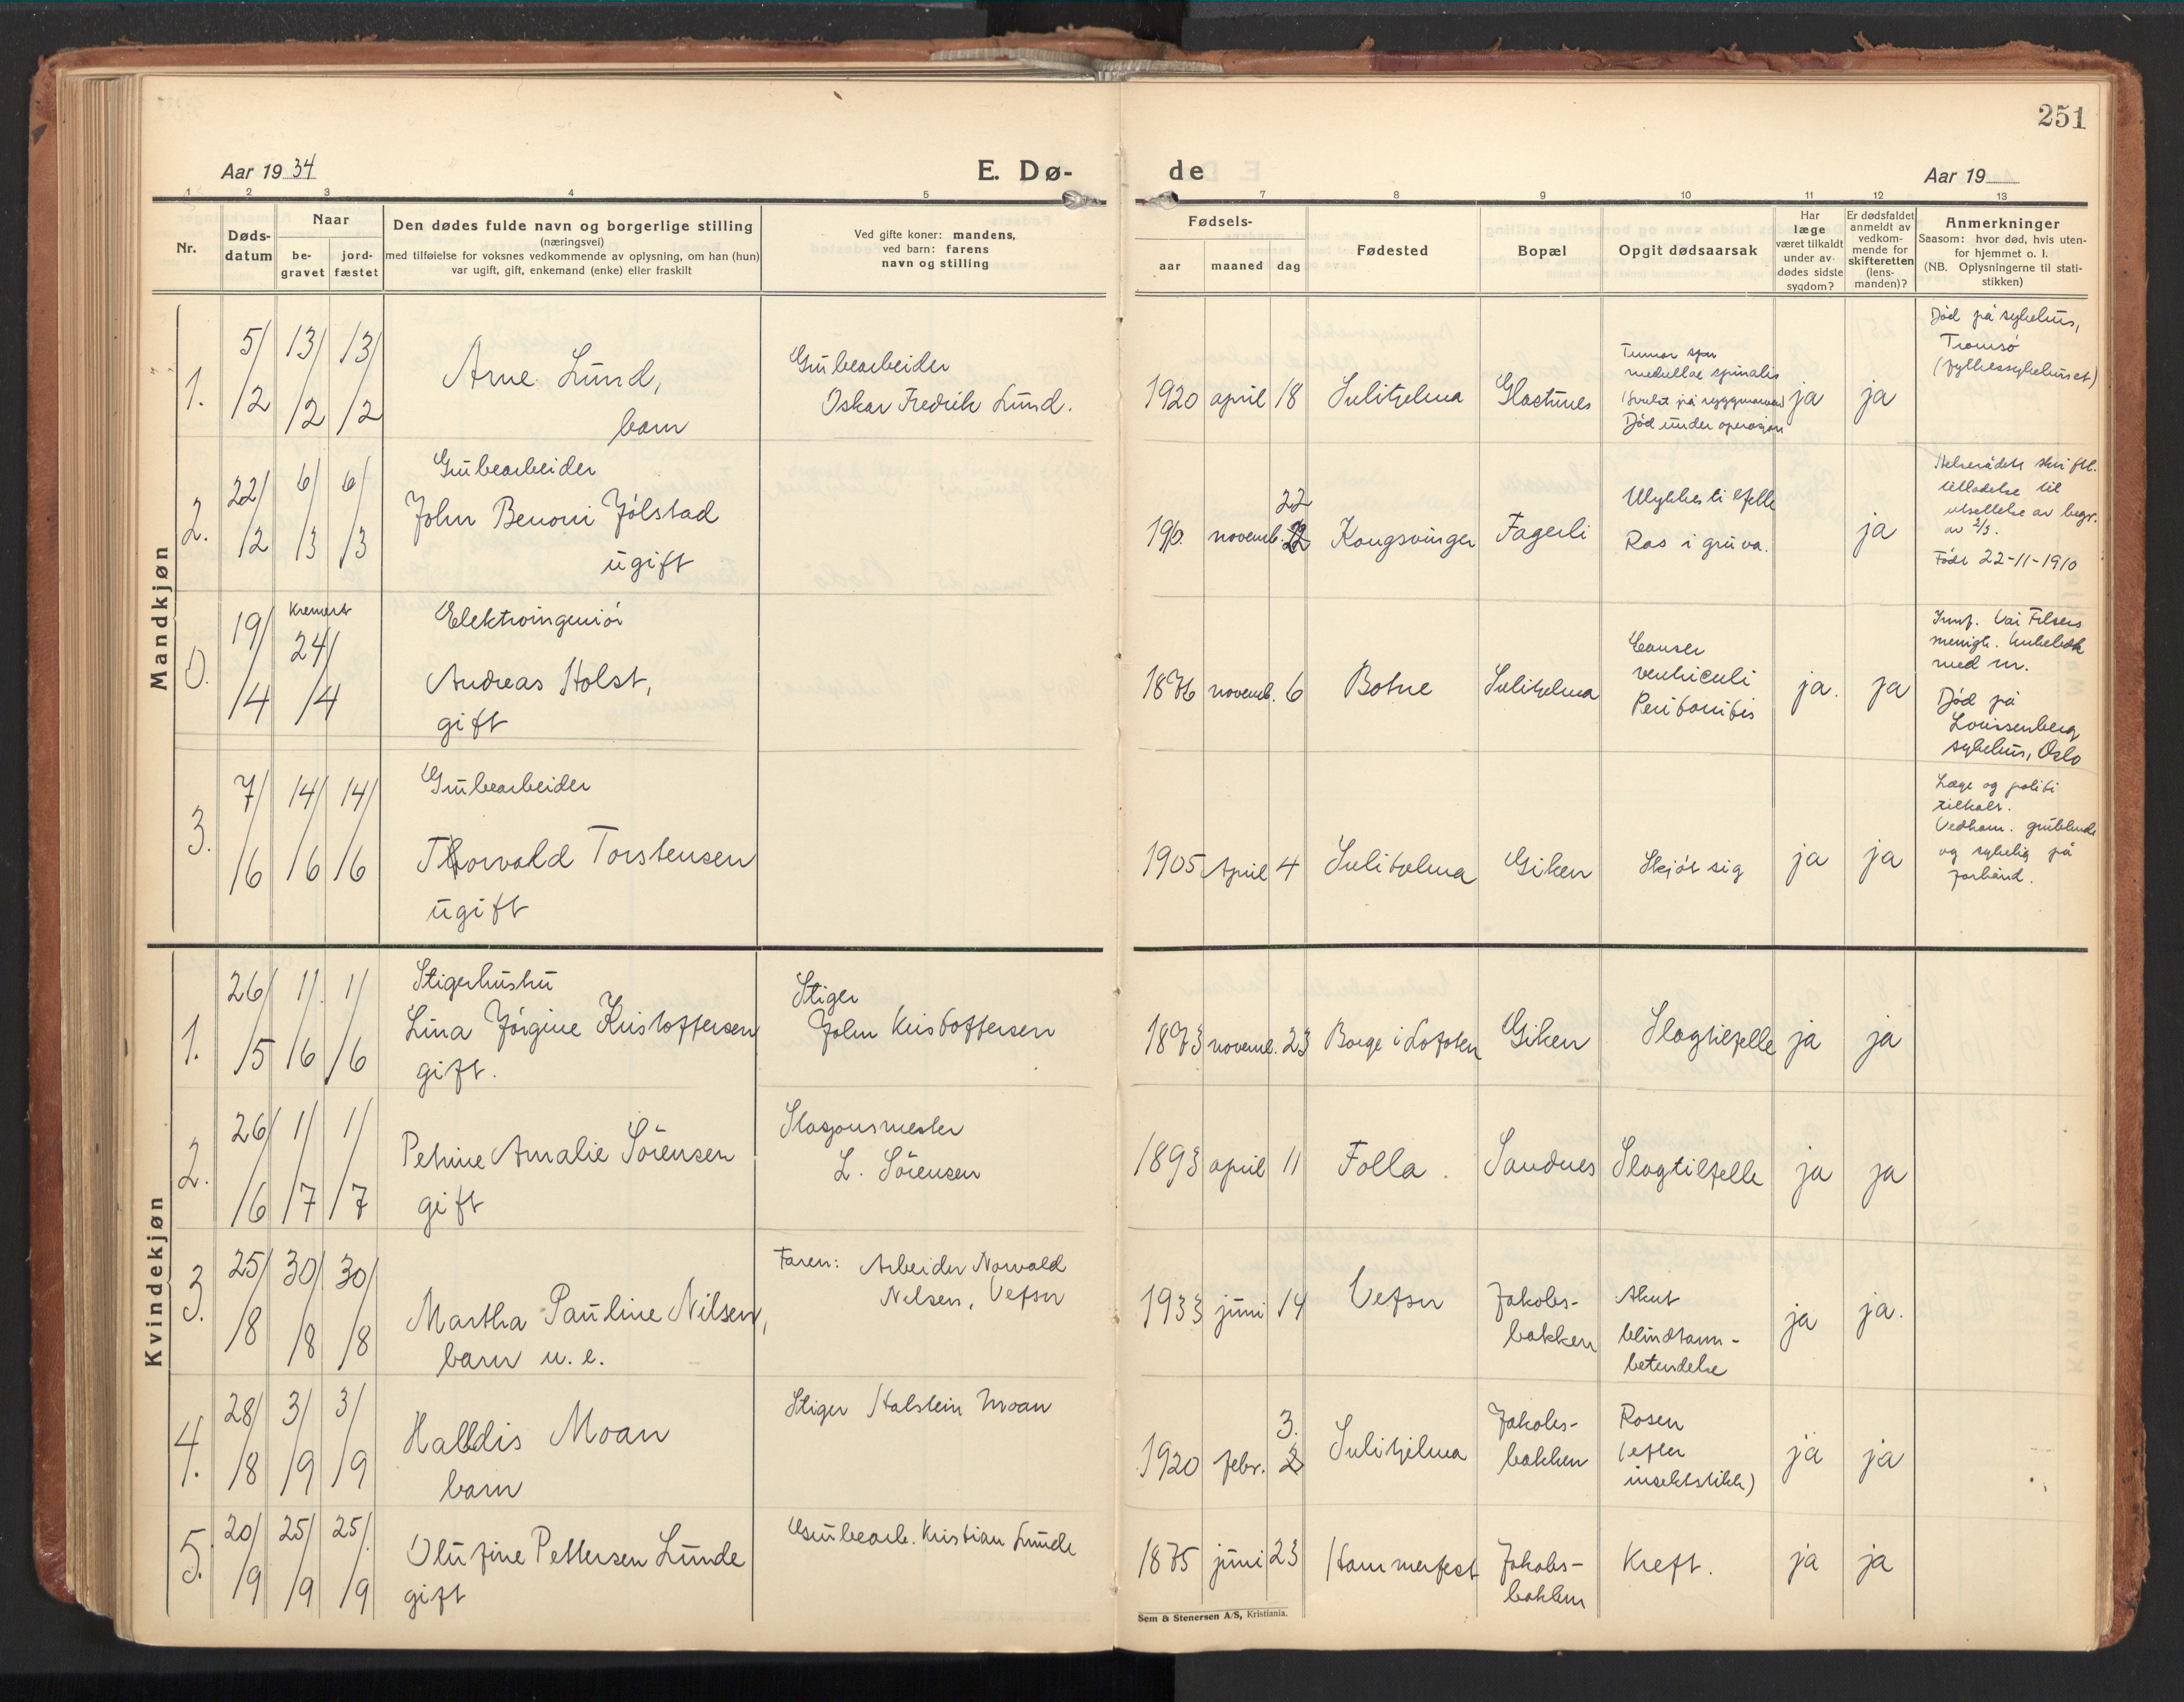 251
Aar 1934
E. Dø-
de
Aar 19
1 2 3 4 5 7 8 9 10 11 12 13
Nr.
Døds-
datum
Naar
be-
gravet
jord-
fæstet
Den dødes fulde navn og borgerlige stilling
(næringsvei)
med tilføielse for voksnes vedkommende av oplysning, om han (hun)
var ugift, gift, enkemand (enke) eller fraskilt
Ved gifte koner: mandens,
ved barn: farens
navn og stilling
Fødsels-
aar
maaned
dag
Fødested
Bopæl
Opgit dødsaarsak
Har
læge
været tilkaldt
under av-
dødes sidste
sygdom?
Er dødsfaldet
anmeldt av
vedkom-
mende for
skifteretten
(lens-
manden)?
Anmerkninger
Saasom: hvor død, hvis uten-
for hjemmet o. l.
(NB. Oplysningerne til stati-
stikken)
Mandkjøn
1.
5/2
13/2
13/2
Arne Lund,
barn
Grubearbeider
Oskar Fredrik Lund.
1920 april 18
Sulitjelma
Glastunes
Tumor
medullae spinalis
(Svulst på ryggmarven)
Død under operasjon
ja
ja
Død på sykehus,
Tromsø
(fylkessykehuset)
2.
22/2
6/3
6/3
Grubearbeider
John Benoni Jølstad
ugift
1910. novemb. 22
Kongsvinger
Fagerli
Ulykkestilfelle
Ras i gruva.
ja
Helserådets skriftl.
tilladelse til
utsettelse av begr.
av 2/3.
Født 22-11-1910
0.
19/4
Kremert
24/4
Elektroingeniør
Andreas Holst,
gift
1876 novemb. 6
Botne
Sulitjelma
Cancer
ventriculi
Peritonitis
ja.
ja
menigh.
med nr.
Død på
Lovissenberg
sykehus, Oslo
3.
7/6
14/6
14/6
Grubearbeider
Thorvald Torstensen
ugift
1905 April 4
Sulitjelma
Giken
Skjøt sig
ja
ja
Læge og politi
tilkalt.
Vedkom. grublende
og sykelig på
forhånd.
Kvindekjøn
1.
26/5
1/6
1/6
Stigerhustru
Lina Jørgine Kristoffersen
gift.
Stiger
John Kristoffersen
1873 novemb. 23
Borge i Lofoten
Giken
Slagtilfelle
ja
ja
2.
26/6
1/7
1/7
Petrine Amalie Sörensen
gift
Stasjonsmester
L. Sörensen
1893 april 11
Folla.
Sandnes
Slagtilfelle
ja
ja
3.
25/8
30/8
30/8
Martha Pauline Nilsen,
barn u. e.
Faren: Arbeider Norvald
Nilsen, Vefsn
1933 juni 14
Vefsn
Jakobs-
bakken
Akut
blindtarm-
betendelse
ja
ja.
4.
28/8
3/9
3/9
Halldis Moan
barn
Stiger Halstein Moan
1920 febr. 3.
Sulitjelma
Jakobs-
bakken
Rosen
(efter
insektstikk)
ja
ja
5.
20/9
25/9
25/9
Olufine Pettersen Lunde
gift
Grubearb. Kristian Lunde
1875 juni 23
Hammerfest
Jakobs-
bakken
Kreft.
ja
ja
Sem & Stenersen A/S, Kristiania.